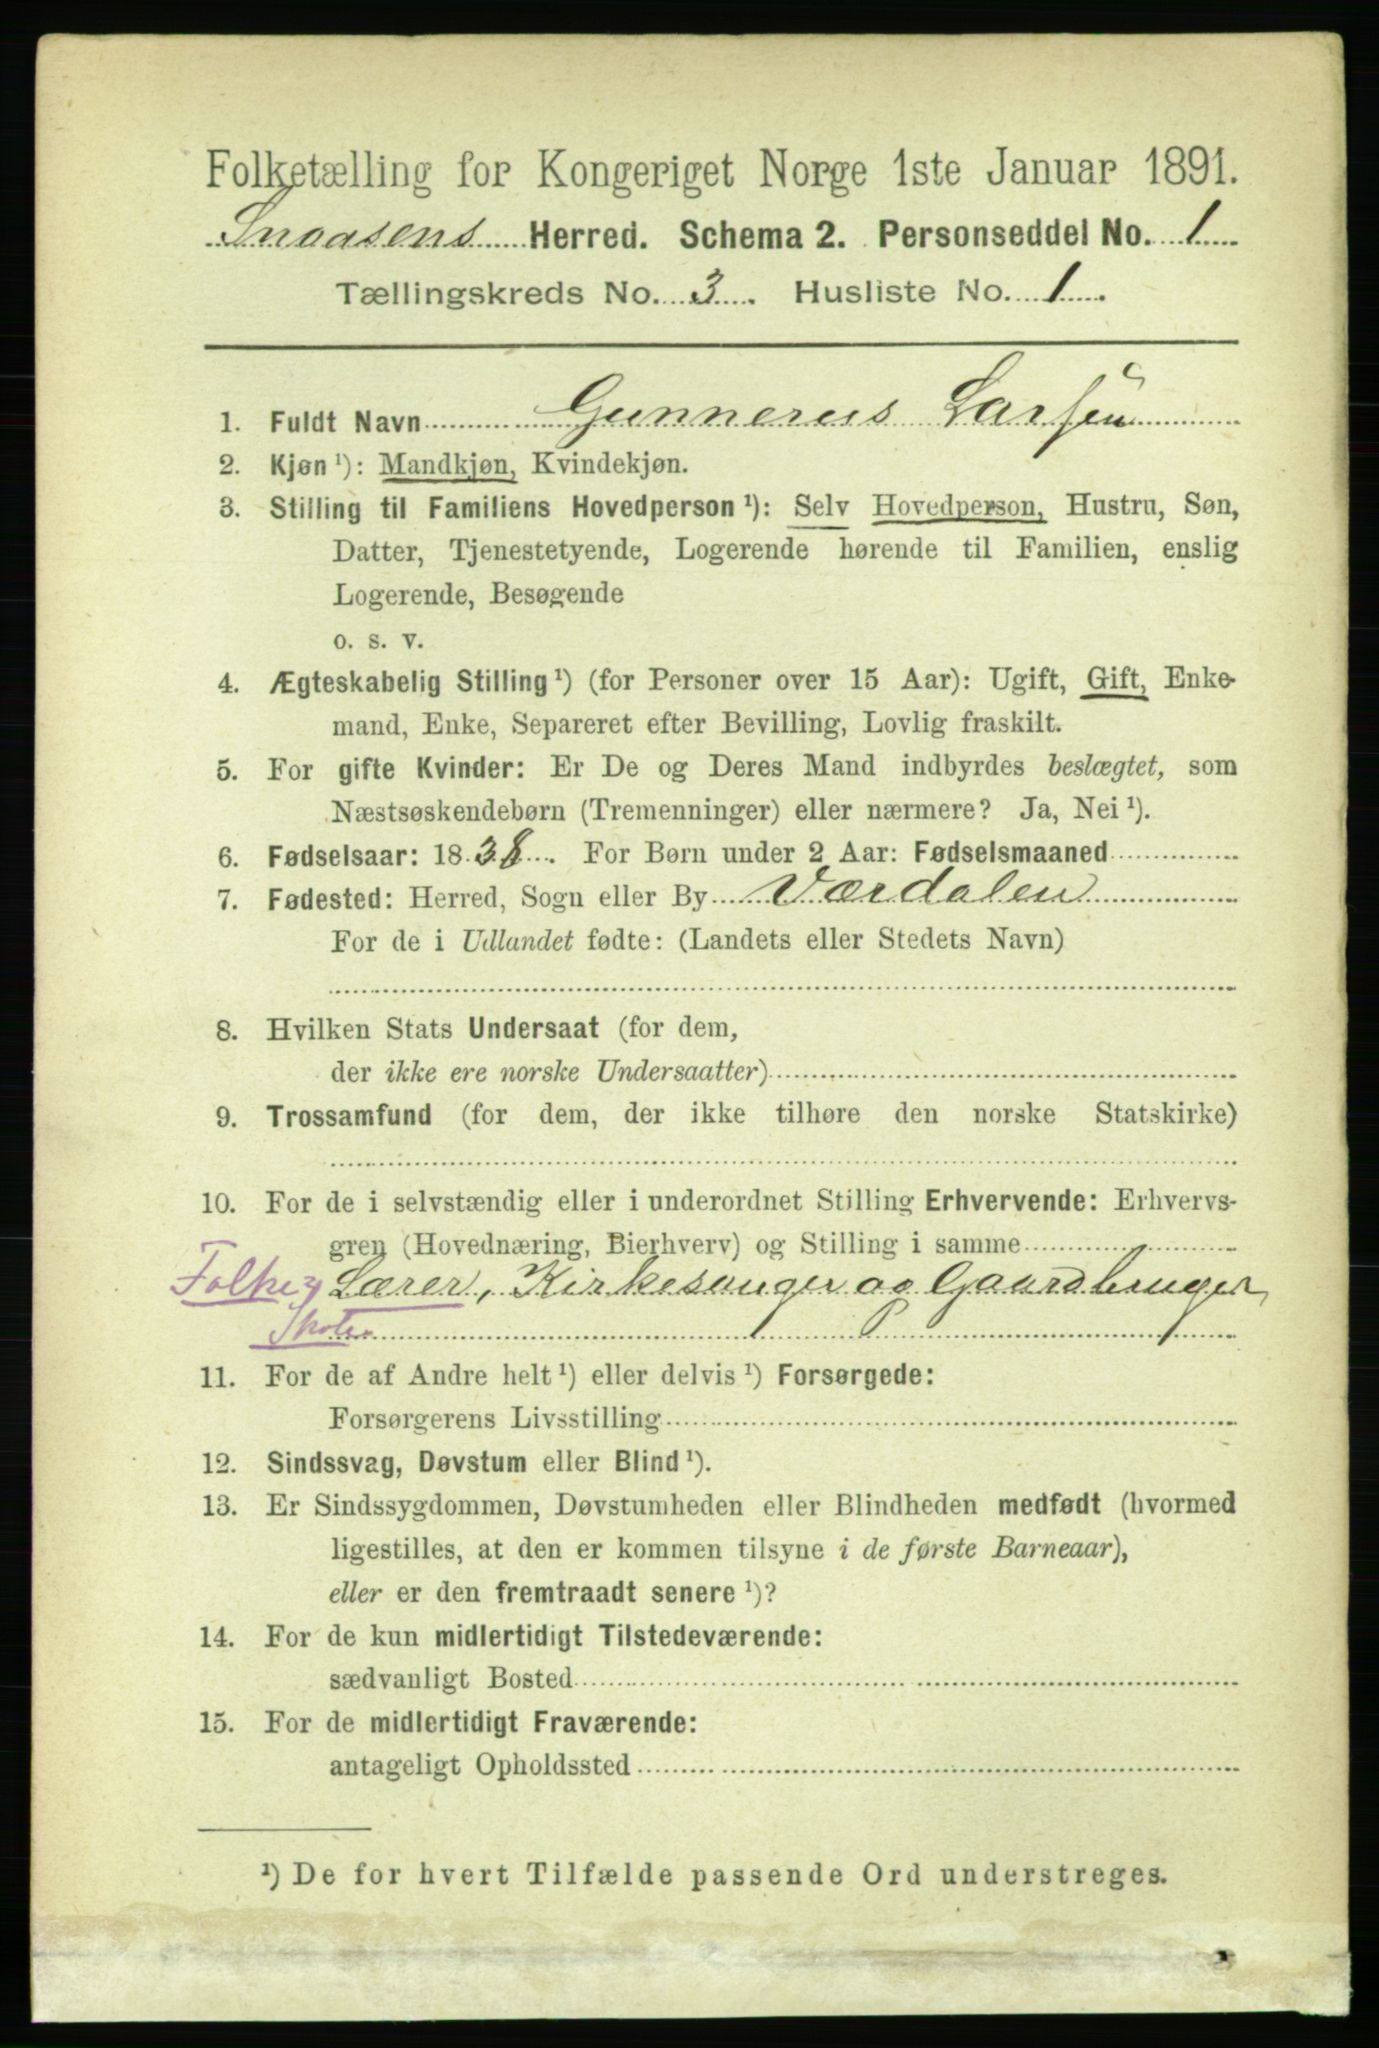 Folketælling for Kongeriget Norge 1ste Januar 1891.
Snaasens Herred. Schema 2. Personseddel No. 1
Tællingskreds No. 3. Husliste No. 1.
1. Fuldt Navn Gunnerus Larsen
2. Kjøn ¹): Mandkjøn, Kvindekjøn.
3. Stilling til Familiens Hovedperson ¹): Selv Hovedperson, Hustru, Søn,
Datter, Tjenestetyende, Logerende hørende til Familien, enslig
Logerende, Besøgende
o. s. v.
4. Ægteskabelig Stilling ¹) (for Personer over 15 Aar): Ugift, Gift, Enke-
mand, Enke, Separeret efter Bevilling, Lovlig fraskilt.
5. For gifte Kvinder: Er De og Deres Mand indbyrdes beslægtet, som
Næstsøskendebørn (Tremenninger) eller nærmere? Ja, Nei ¹).
6. Fødselsaar: 1838. For Børn under 2 Aar: Fødselsmaaned
7. Fødested: Herred, Sogn eller By Værdalen
For de i Udlandet fødte: (Landets eller Stedets Navn)
8. Hvilken Stats Undersaat (for dem,
der ikke ere norske Undersaatter)
9. Trossamfund (for dem, der ikke tilhøre den norske Statskirke)
10. For de i selvstændig eller i underordnet Stilling Erhvervende: Erhvervs-
gren (Hovednæring, Bierhverv) og Stilling i samme
Folke Lærer, Kirkesanger og Gaardbruger
Skole
11. For de af Andre helt ¹) eller delvis ¹) Forsørgede:
Forsørgerens Livsstilling
12. Sindssvag, Døvstum eller Blind ¹).
13. Er Sindssygdommen, Døvstumheden eller Blindheden medfødt (hvormed
ligestilles, at den er kommen tilsyne i de første Barneaar),
eller er den fremtraadt senere ¹)?
14. For de kun midlertidigt Tilstedeværende:
sædvanligt Bosted
15. For de midlertidigt Fraværende:
antageligt Opholdssted
¹) De for hvert Tilfælde passende Ord understreges.